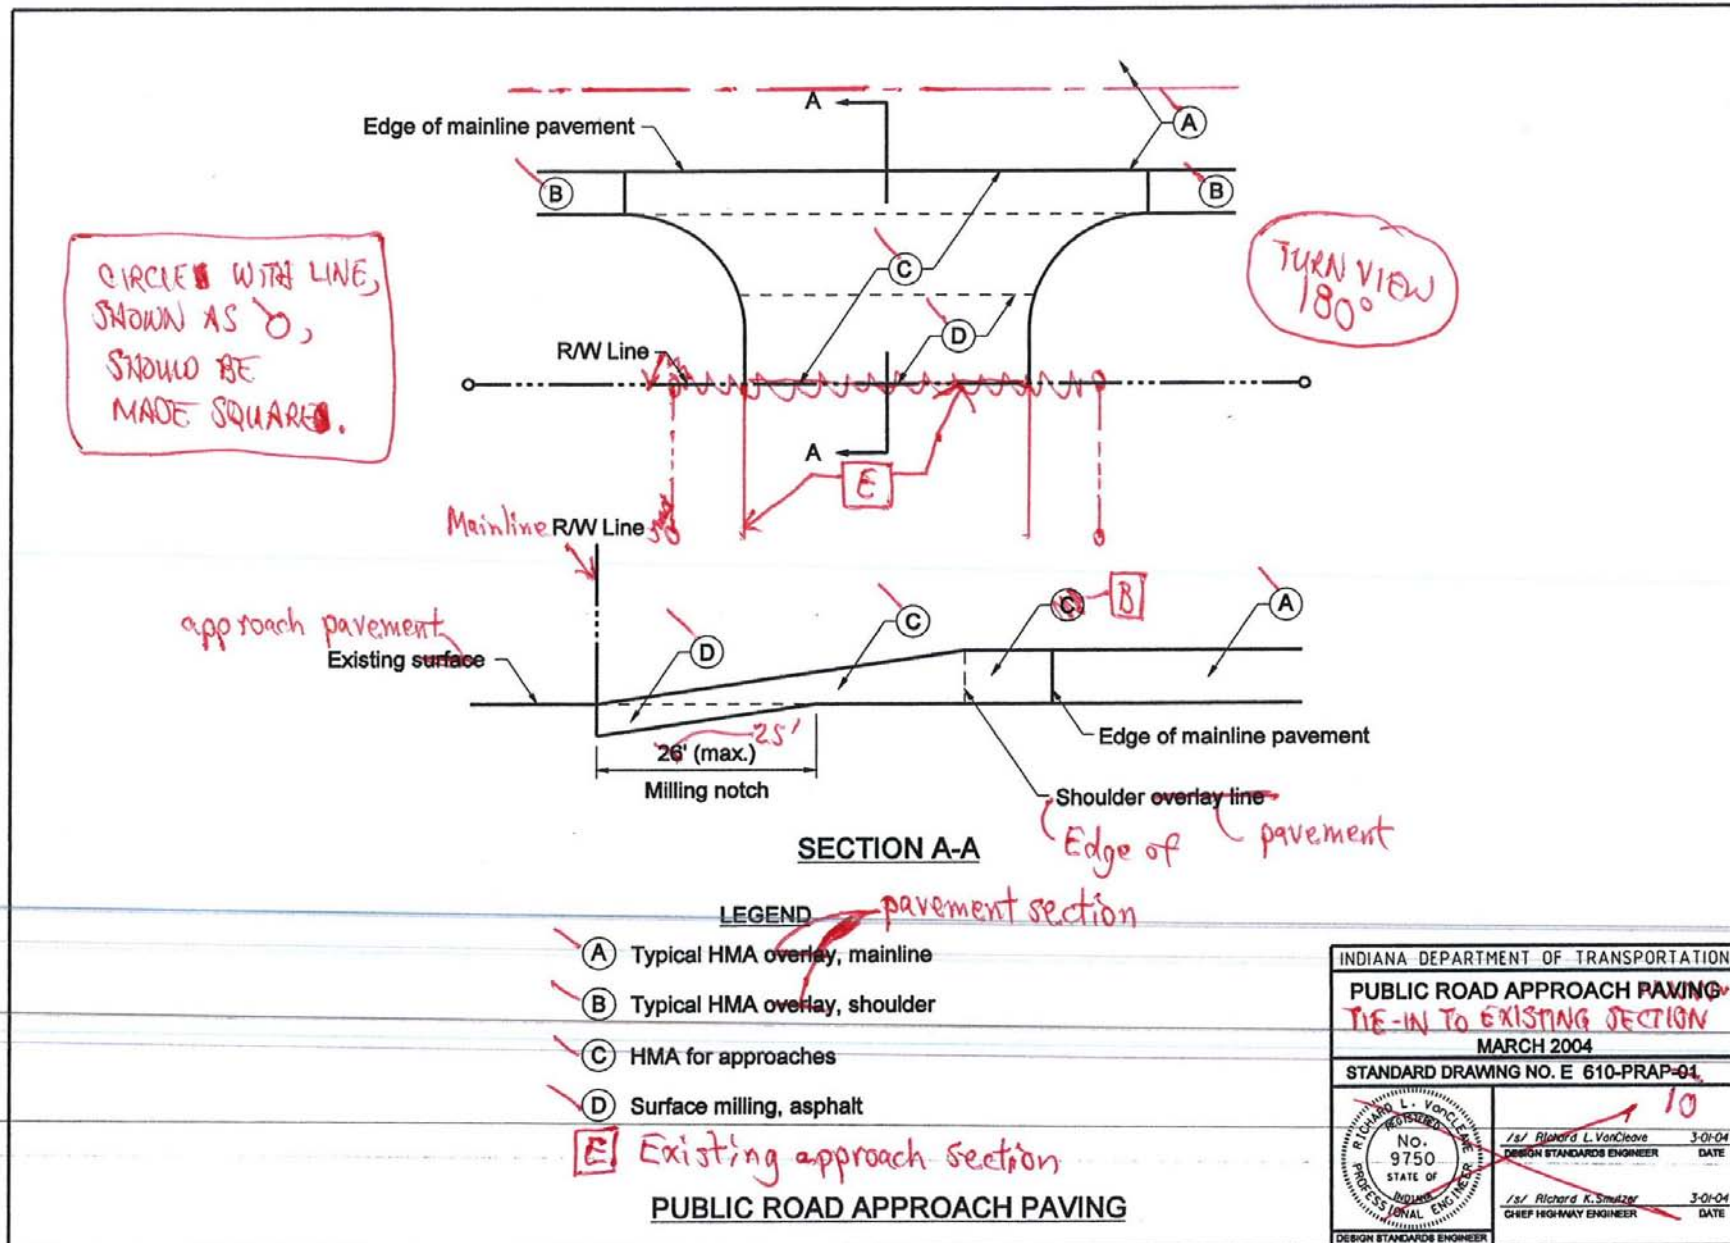 A
Edge of mainline pavement
A
B
B
CIRCLES WITH LINE,
SHOWN AS O,
SHOULD BE
MADE SQUARES.
C
TURN VIEW
180°
D
R/W Line
A
E
Mainline R/W Line
approach pavement
Existing surface
D
C
C
B
A
25'
26' (max.)
Milling notch
Edge of mainline pavement
Shoulder overlay line
Edge of
pavement
SECTION A-A
LEGEND
pavement section
A Typical HMA overlay, mainline
B Typical HMA overlay, shoulder
C HMA for approaches
D Surface milling, asphalt
E Existing approach section
PUBLIC ROAD APPROACH PAVING
INDIANA DEPARTMENT OF TRANSPORTATION
PUBLIC ROAD APPROACH PAVING
TIE-IN TO EXISTING SECTION
MARCH 2004
STANDARD DRAWING NO. E 610-PRAP-01
10
RICHARD L. VanCLEAVE
REGISTERED
NO.
9750
STATE OF
INDIANA
PROFESSIONAL ENGINEER
/s/ Richard L. VanCleave 3-01-04
DESIGN STANDARDS ENGINEER DATE
/s/ Richard K. Smutzer 3-01-04
CHIEF HIGHWAY ENGINEER DATE
DESIGN STANDARDS ENGINEER